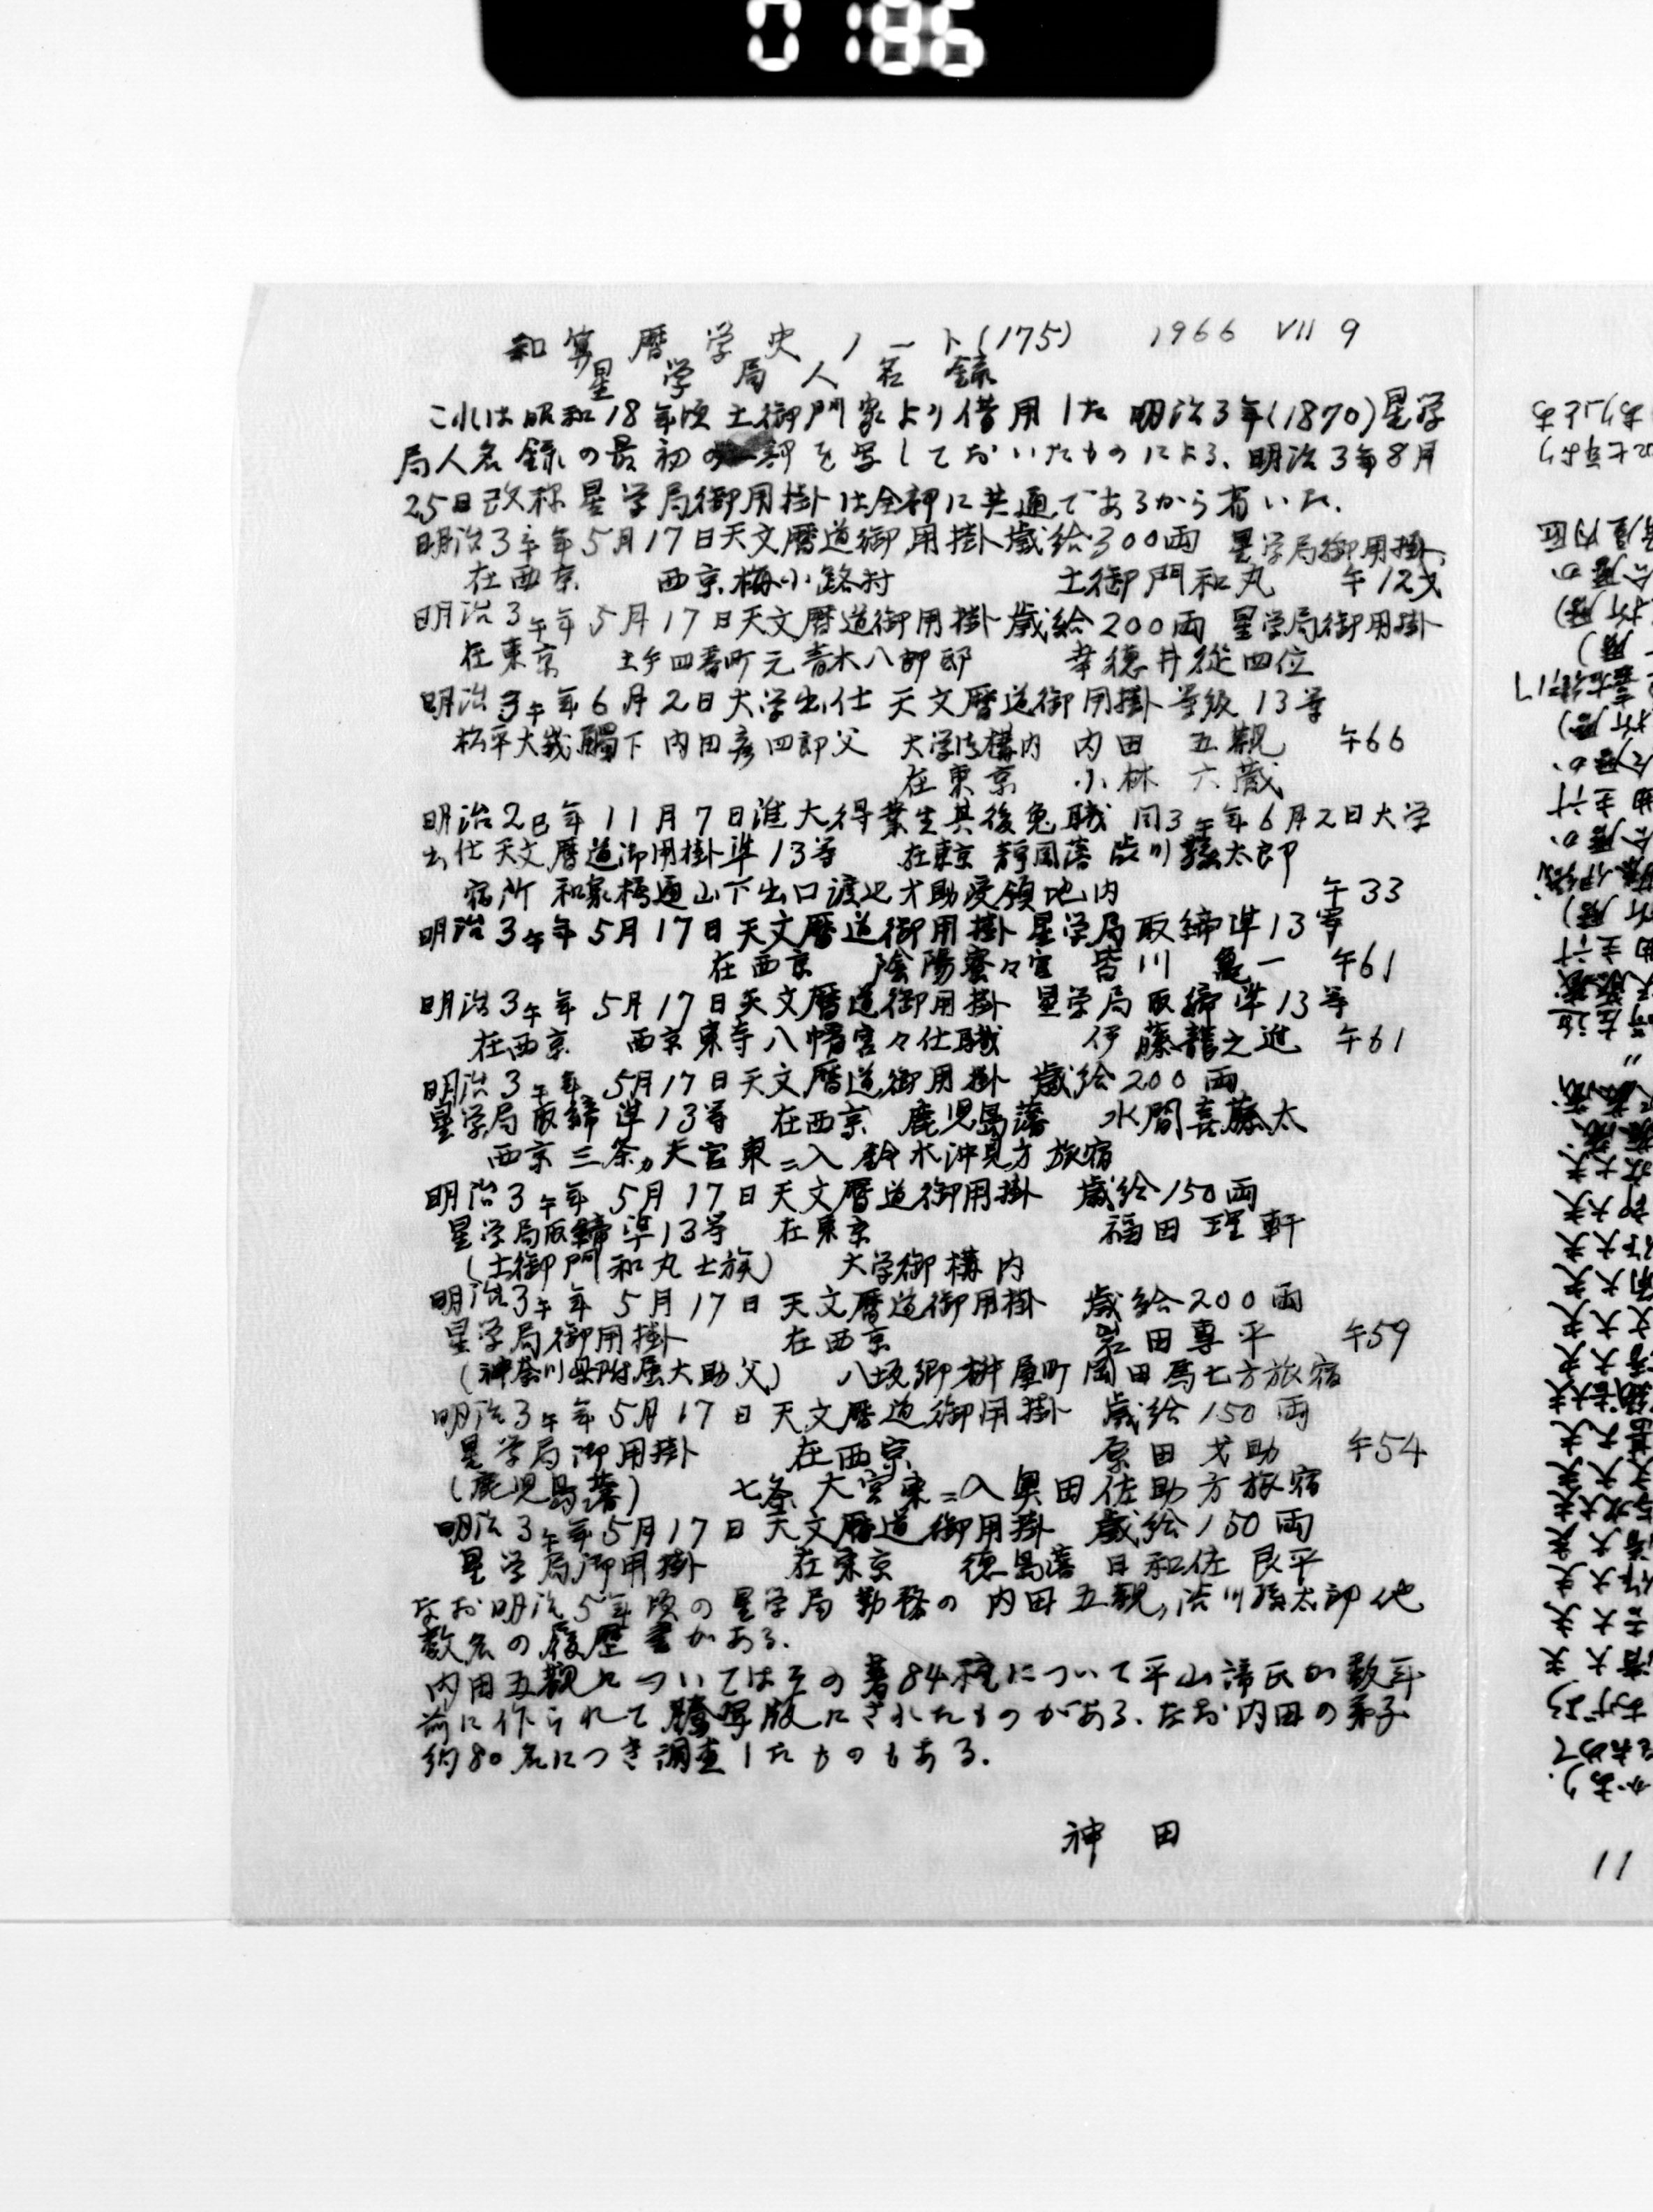 0186
和算暦学史ノート(175) 1966 VII 9
星学局人名録
これは昭和18年頃土御門家より借用した明治3年(1870)星学
局人名録の最初の一部を写しておいたものによる、明治3年8月
25日改称星学局御用掛は全部に共通であるから省いた.
明治3午年5月17日天文暦道御用掛歳給300両 星学局御用掛、
在西京 西京梅小路村 土御門和丸 午12才
明治3午年5月17日天文暦道御用掛歳給200両 星学局御用掛
在東京 土手四番町元青木八郎邸 幸徳井従四位
明治3午年6月2日大学出仕 天文暦道御用掛等級13等
松平大蔵觸下 内田彦四郎父 大学構内 内田 五觀 午66
在東京 小林 六蔵
明治2巳年11月7日准大得業生其後免職 同3午年6月2日大学
出仕天文暦道御用掛準13等 在東京 静岡藩 渋川孫太郎
宿所 和泉橋通山下出口渡辺才助受領地内 午33
明治3午年5月17日天文暦道御用掛 星学局取締準13等
在西京 陰陽寮々官 皆川 亀一 午61
明治3午年5月17日天文暦道御用掛 星学局取締準13等
在西京 西京東寺八幡宮々仕職 伊藤龍之進 午61
明治3午年 5月17日天文暦道御用掛 歳給200両
星学局取締準13等 在西京 鹿児島藩 水間喜藤太
西京三条 大宮東ニ入 鈴木沖見方旅宿
明治3午年 5月17日天文暦道御用掛 歳給150両
星学局取締準13等 在東京 福田理軒
(土御門和丸士族) 大学御構内
明治3午年 5月17日 天文暦道御用掛 歳給200両
星学局御用掛 在西京 岩田専平 午59
(神奈川県附属大助父) 八坂郷桝屋町岡田馬七方旅宿
明治3午年5月17日 天文暦道御用掛 歳給150両
星学局御用掛 在西京 原田才助 午54
(鹿児島藩) 七条大宮東ニ入奥田佐助方旅宿
明治3午年5月17日 天文暦道御用掛 歳給150両
星学局御用掛 在東京 徳島藩 日和佐良平
なお明治5年頃の星学局勤務の内田五観,渋川孫太郎他
数名の履歴書がある.
内田五觀についてはその著84種について平山諦氏が数年
前に作られて謄写版にされたものがある、なお内田の弟子
約80名につき調査したものもある.
神田
11